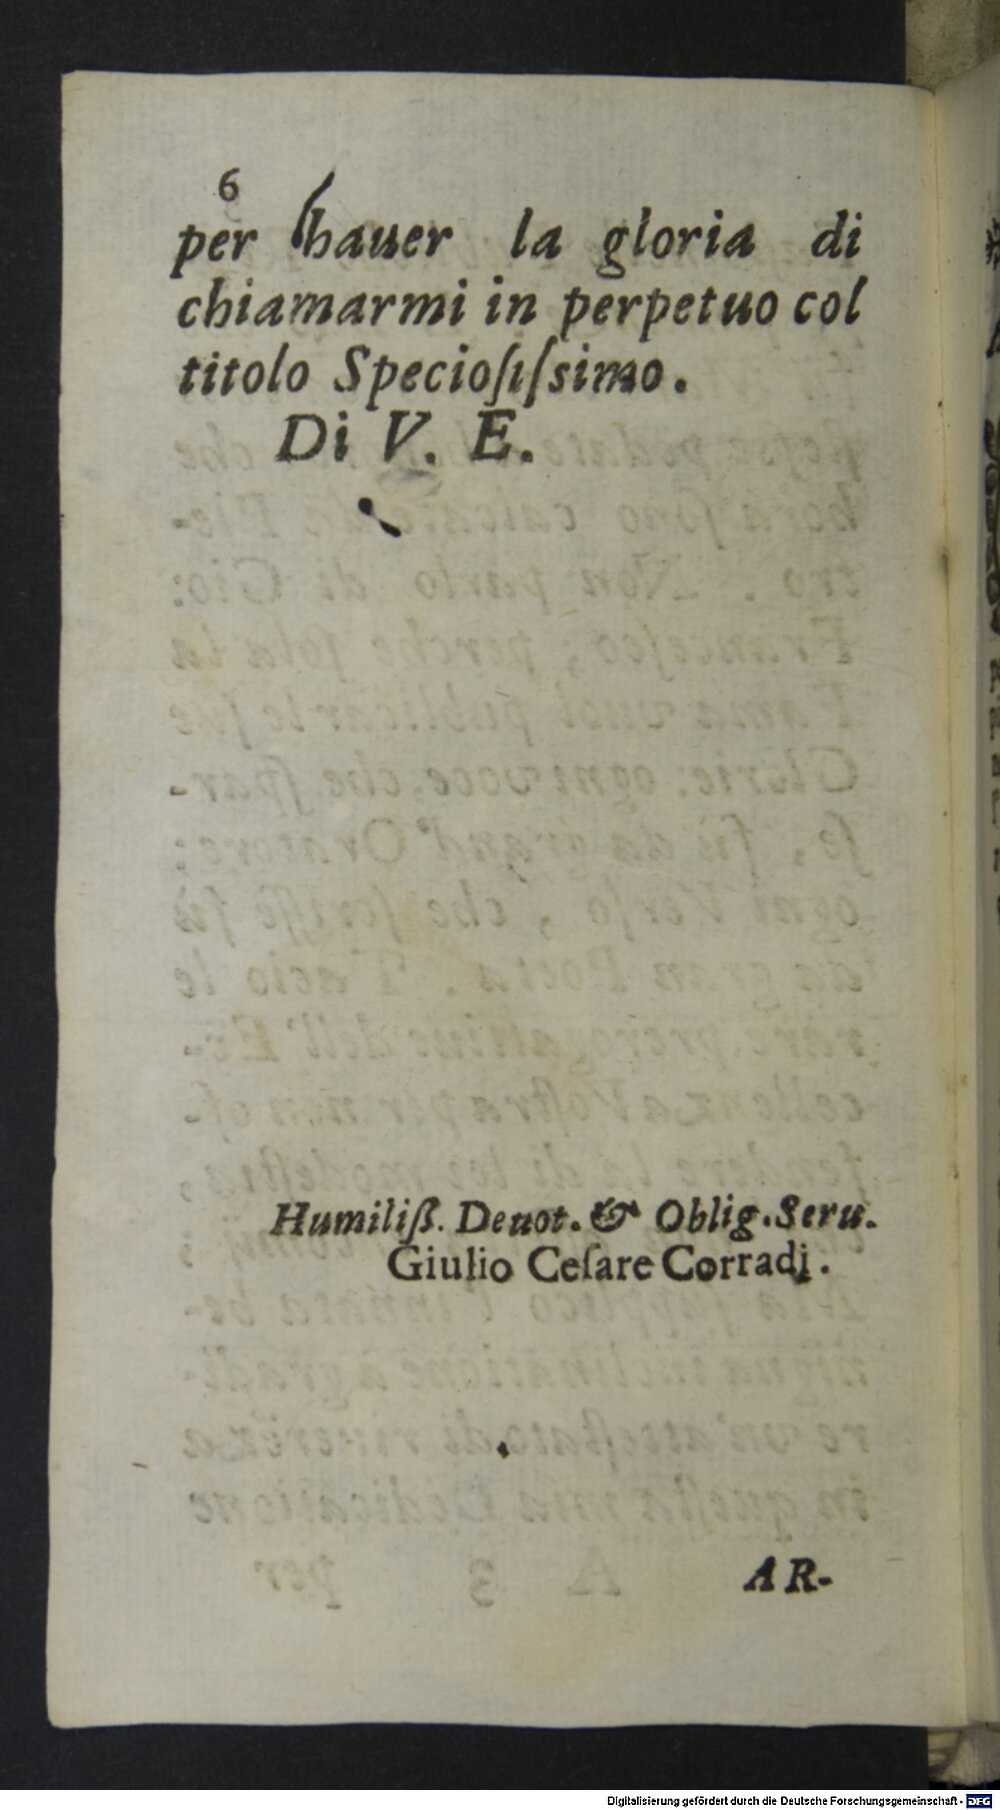 6
per hauer la gloria di
chiamarmi in perpetuo col
titolo Specioſiſsimo.
Di V. E.
Humiliß. Deuot. & Oblig. Seru.
Giulio Ceſare Corradi.
AR-
Digitalisierung gefördert durch die Deutsche Forschungsgemeinschaft - DFG